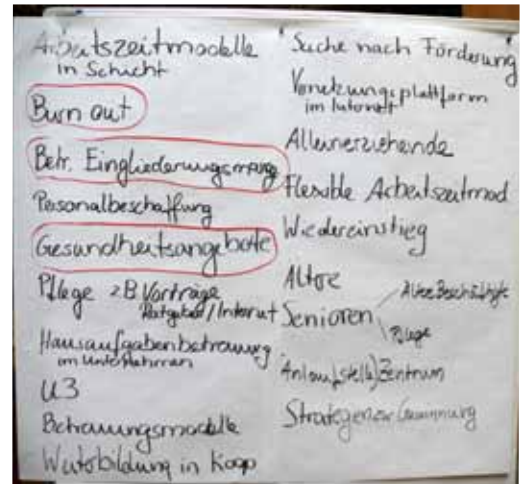 Arbeitszeitmodelle
in Schicht
Burn out
Betr. Eingliederungsmang
Personalbeschaffung
Gesundheitsangebote
Pflege z B Vorträge
Ratgeber / Internet
Hausaufgabenbetreuung
im Unternehmen
U3
Betreuungsmodelle
Weiterbildung in Koop
Suche nach Förderung
Vernetzungsplattform
im Internet
Alleinerziehende
Flexible Arbeitszeitmod
Wiedereinstieg
Ältere
Senioren
Ältere Beschäftigte
Pflege
Anlauf(stelle) Zentrum